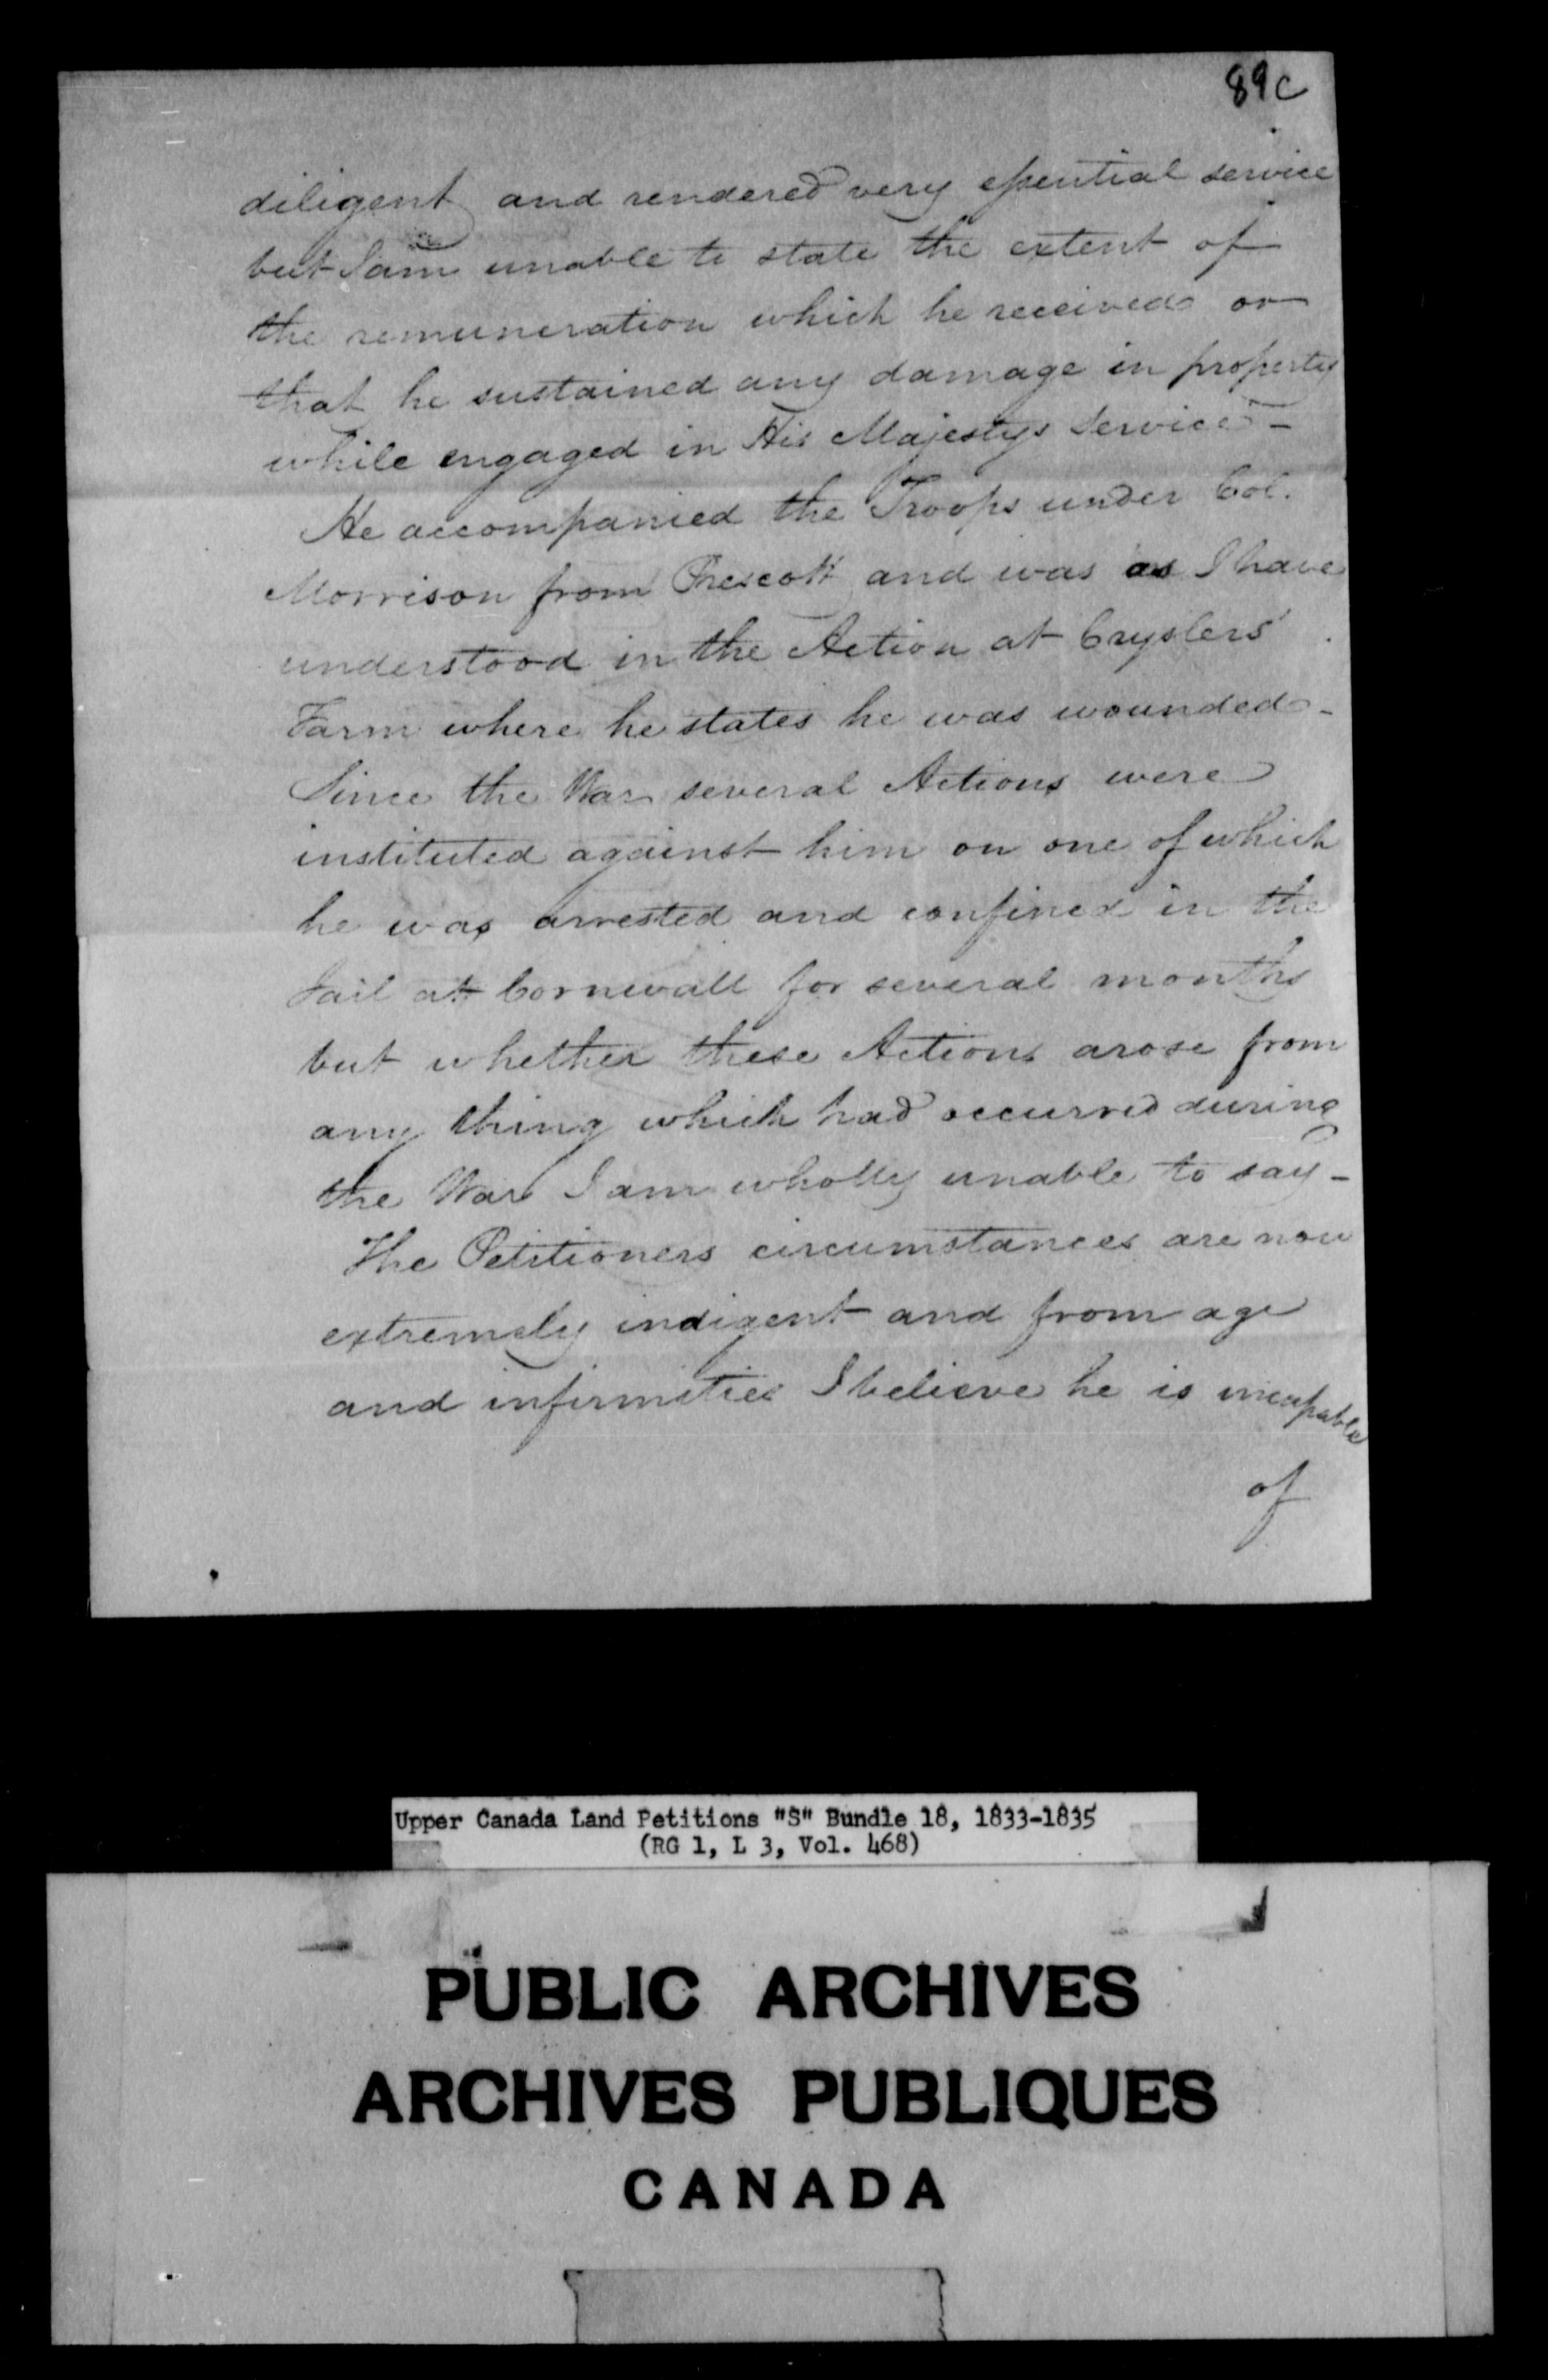 89c
diligent and rendered very essential service
but I am unable to state the extent of
the remuneration which he received or
that he sustained any damage in property
while engaged in His Majestys Service -
He accompanied the Troops under Col.
Morrison from Prescott and was as I have
understood in the Action at Cryslers
Farm where he states he was wounded -
Since the War several Actions were
instituted against him on one of which
he was arrested and confined in the
Jail at Cornwall for several months
but whether these Actions arose from
any thing which had occurred during
the War I am wholly unable to say -
The Petitioners circumstances are now
extremely indigent and from age
and infirmities I believe he is incapable
of
Upper Canada Land Petitions "S" Bundle 18, 1833-1835
(RG 1, L 3, Vol. 468)
PUBLIC ARCHIVES
ARCHIVES PUBLIQUES
CANADA